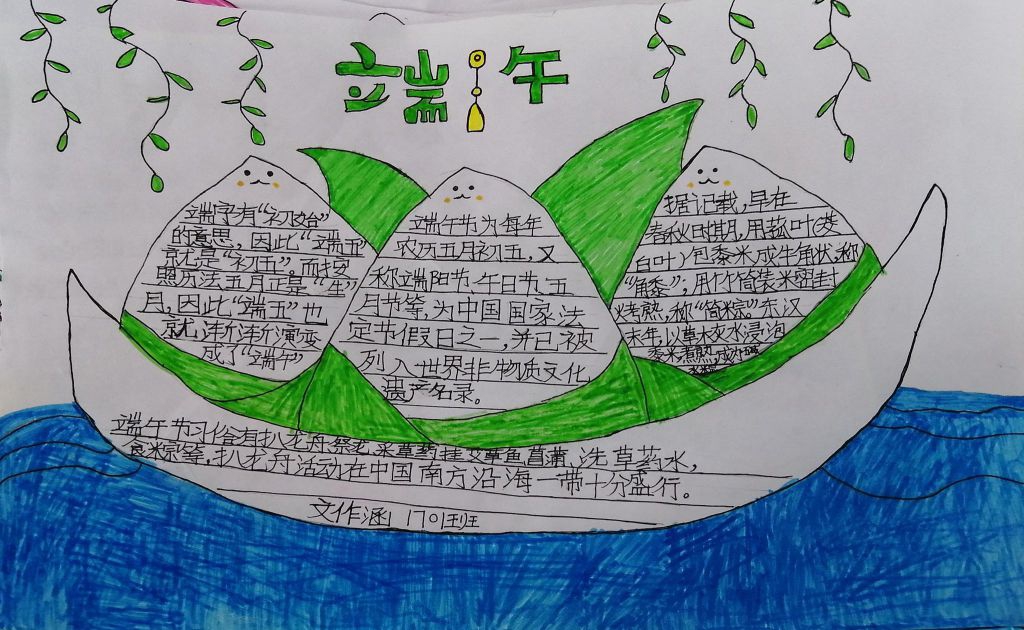 端午
端字有“初始”
的意思，因此“端五”
京尤是“初五”。而按
照历法五月正是“午”
月，因此“端五”也
京尤渐渐演变
成了“端午”
端午节为每年
农历五月初五，又
称端阳节、午日节、五
月节等，为中国国家法
定节假日之一，并已被
列入世界非物质文化
遗产名录。
据记载，早在
春秋时期，用菰叶(茭
白叶)包黍米成牛角状，称
“角黍”；用竹筒装米密封
烤熟，称“筒粽”。东汉
末年，以草木灰水浸泡
黍米，煮熟，成
端午节习俗有扒龙舟、祭龙、采草药、挂艾草、菖蒲、洗草药水，
食粽等，扒龙舟活动在中国南方沿海一带十分盛行。
文作涵 1701班